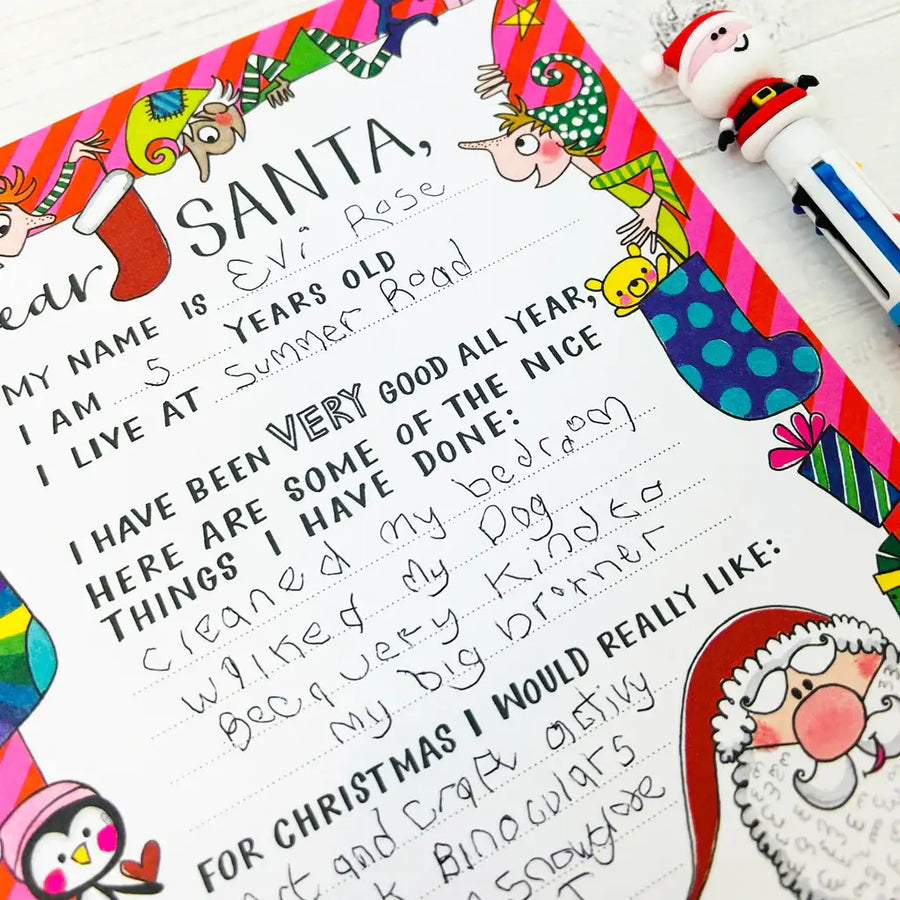 ear
SANTA,
MY NAME IS Evi Rose
I AM 5 YEARS OLD
I LIVE AT Summer Road
I HAVE BEEN VERY GOOD ALL YEAR,
HERE ARE SOME OF THE NICE
THINGS I HAVE DONE:
cleaned my bedroom
walked my Dog
very kind to
my big brother
FOR CHRISTMAS I WOULD REALLY LIKE:
and craft
Binoculars
snowglobe